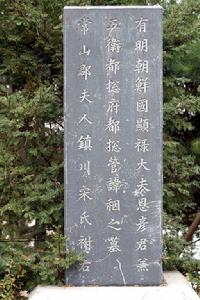 有明朝鮮國顯祿大夫恩彦君兼
五衛都摠府都摠管諱䄄之墓
常山郡夫人鎭川宋氏祔右